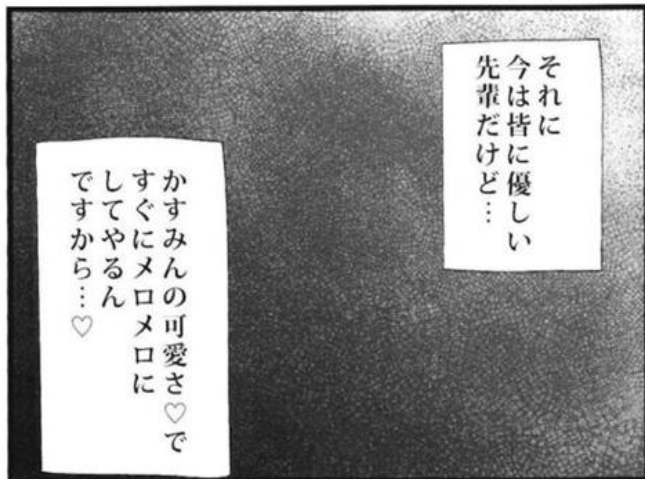 それに
今は皆に優しい
先輩だけど…
かすみんの可愛さ♡で
すぐにメロメロに
してやるん
ですから…♡